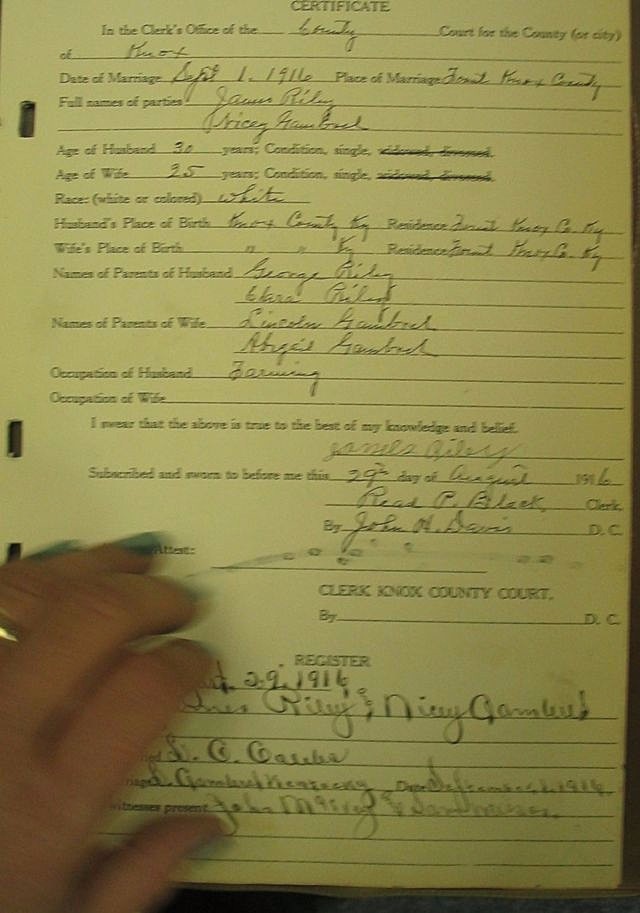 CERTIFICATE
In the Clerk's Office of the County Court for the County (or city)
of Knox
Date of Marriage Sept 1. 1916 Place of Marriage Knox County
Full names of parties James Riley
Nicey Gambrel
Age of Husband 30 years; Condition, single, widowed, divorced.
Age of Wife 25 years; Condition, single, widowed, divorced.
Race: (white or colored) white
Husband's Place of Birth Knox County Ky Residence Knox Co. Ky
Wife's Place of Birth " " Ky Residence Knox Co. Ky
Names of Parents of Husband George Riley
Clara Riley
Names of Parents of Wife Lincoln Gambrel
Abigail Gambrel
Occupation of Husband Farming
Occupation of Wife
I swear that the above is true to the best of my knowledge and belief.
James Riley
Subscribed and sworn to before me this 29th day of August 1916
Read P. Black, Clerk.
By John H. Davis D. C.
Attest:
CLERK KNOX COUNTY COURT.
By D. C.
REGISTER
29, 1916
Riley & Nicey Gambrel
Gambrel Kentucky, Date September 1, 1916
witnesses present John &